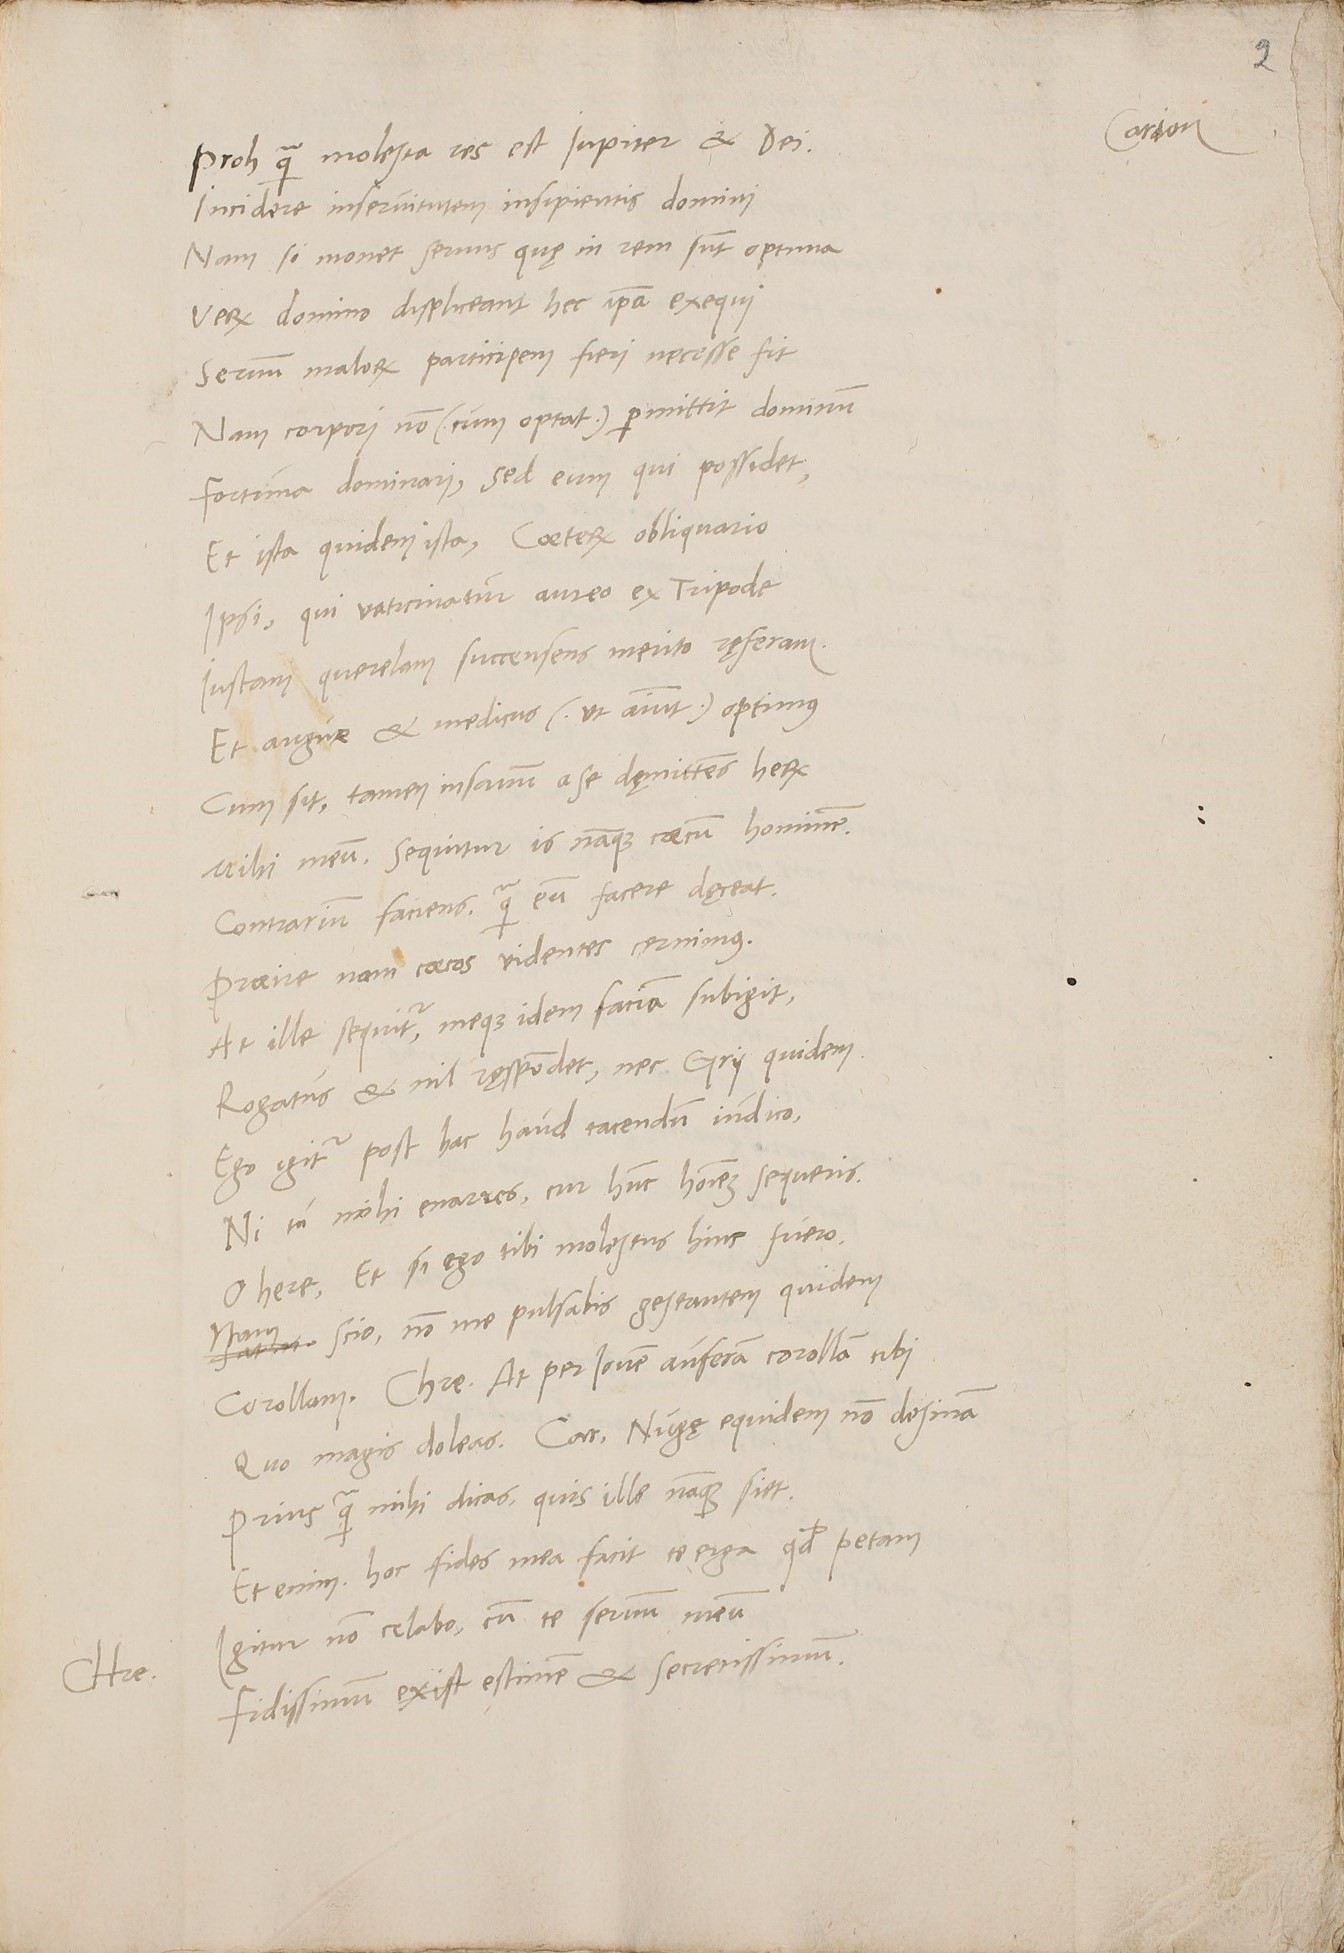 2
Carion
Proh qua̅ molesta res est Iupiter & Dei.
Incidere inseruitutem insipientis domini
Nam si monet seruus quę in rem su̅t optima
Veꝝ domino displiceant hec ip̅a exequi
Seruu̅ maloꝝ participem fieri necesse fit
Nam corpori no̅ (.cum optat.) ꝑmittit dominu̅
Fortuna dominari, sed eum qui possidet,
Et ista quidem ista, Coeteꝝ obliquario
Ipsi, qui vaticinatur aureo ex Tripode
Iustam querelam succensens merito ręferam.
Et augur & medicus (. vt aiu̅t.) optimꝰ
Cum sit, tamen insanu̅ a se dęmitte̅s heꝝ
Mihi meu̅. Sequitur is na̅qꝫ coecu̅ homine̅.
Contrariu̅ faciens. qua̅ eu̅ facere dęceat.
Proeire nam coecos videntes cernimꝰ.
At ille sequitᷣ, meqꝫ idem facia̅ subigit,
Rogatus & nil ręspo̅det, nec Gry quidem.
Ego igitᷣ post hac haud tacendu̅ iudico,
Ni tu mihi enarres, cur hu̅c hoie̅ꝫ sequeris.
O hęre, Et si ego tibi molestus hinc fuero.
Nam scio, no̅ me pulsabis gestantem quidem
Corollam. Chrę. At per Ioue̅ aufera̅ corolla̅ tibi
Quo magis doleas. Car. Nugę equidem no̅ desina̅
Prius qua̅ mihi dicas, quis ille na̅qꝫ siet.
Et enim. hoc fides mea facit te erga qd̅ petam
Chre. Igitur no̅ cęlabo, cu̅ te seruu̅ meu̅
Fidissimu̅ exist estime̅ & secretissimu̅.